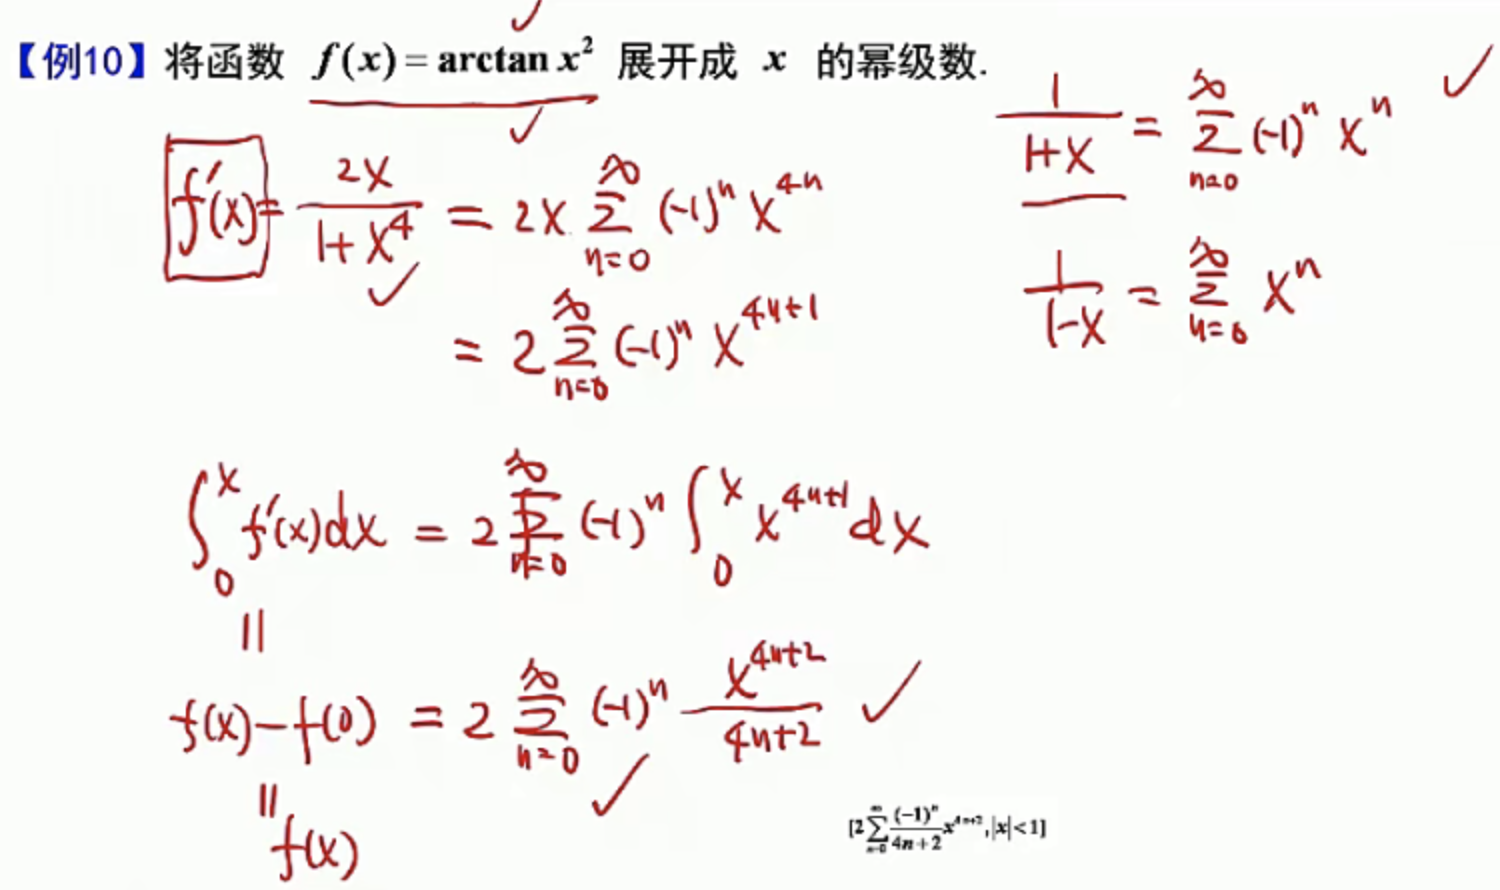 【例10】将函数 f(x) = arctan x² 展开成 x 的幂级数.
1/(1+x) = ∑_{n=0}^{∞} (-1)^n x^n
f'(x) = 2x/(1+x^4) = 2x ∑_{n=0}^{∞} (-1)^n x^{4n}
1/(1-x) = ∑_{n=0}^{∞} x^n
= 2 ∑_{n=0}^{∞} (-1)^n x^{4n+1}
∫_0^x f'(x)dx = 2 ∑_{n=0}^{∞} (-1)^n ∫_0^x x^{4n+1} dx
||
f(x) - f(0) = 2 ∑_{n=0}^{∞} (-1)^n x^{4n+2}/(4n+2)
||
f(x)
[2∑_{n=0}^{∞} (-1)^n/(4n+2) x^{4n+2}, |x|<1]